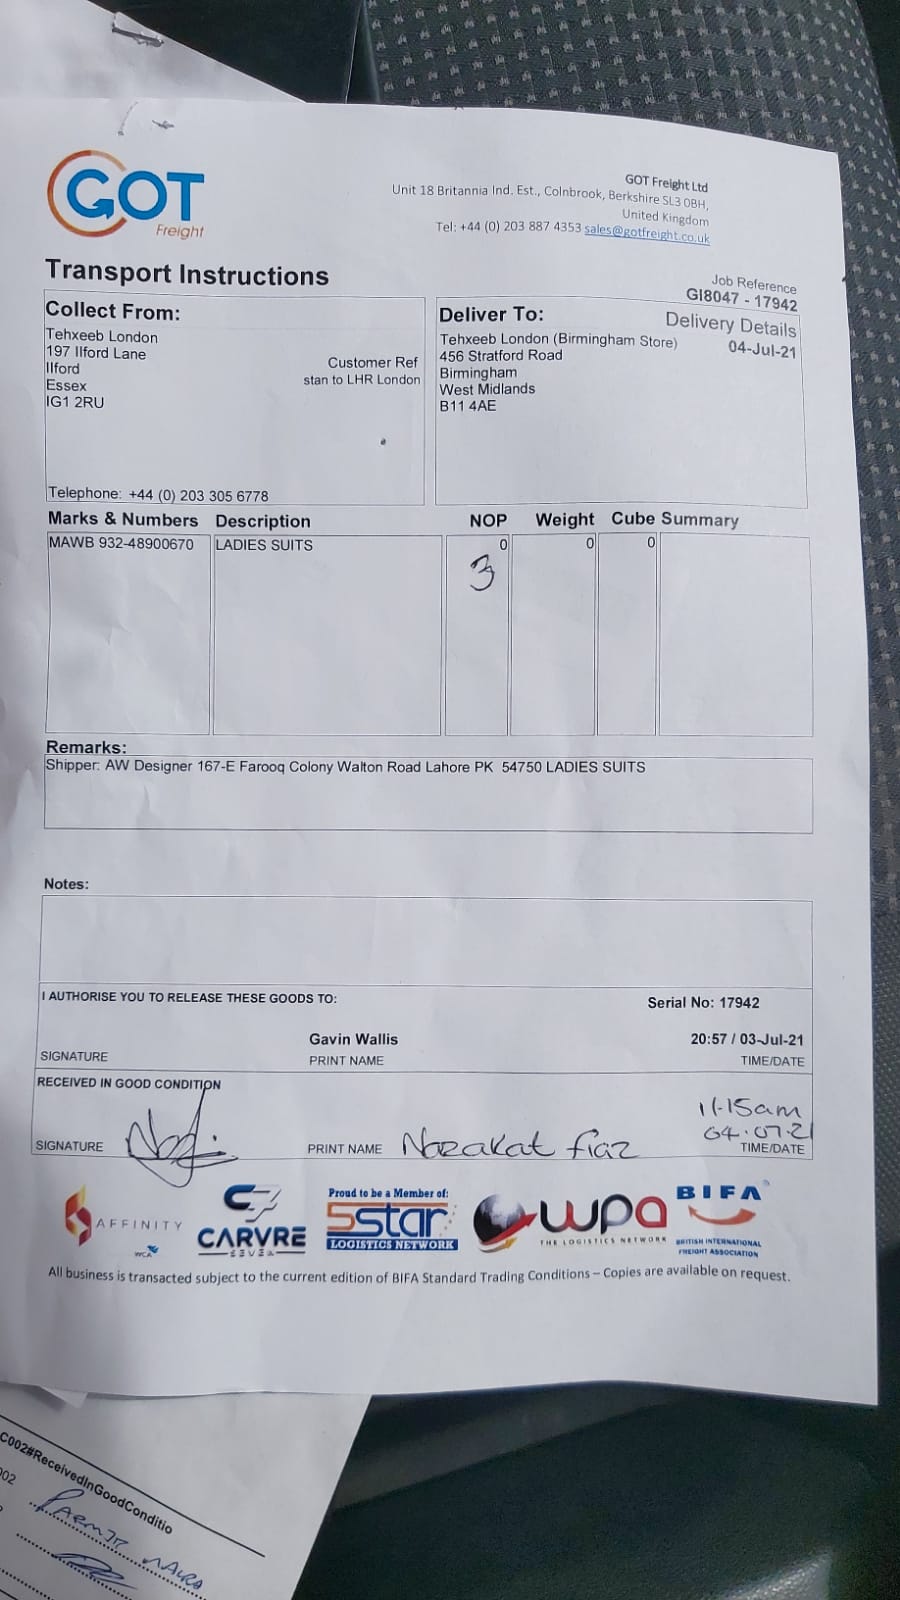 GOT
Freight
GOT Freight Ltd
Unit 18 Britannia Ind. Est., Colnbrook, Berkshire SL3 0BH,
United Kingdom
Tel: +44 (0) 203 887 4353 sales@gotfreight.co.uk
Transport Instructions
Job Reference
GI8047 - 17942
Collect From:
Tehxeeb London
197 Ilford Lane
Ilford
Essex
IG1 2RU
Customer Ref
stan to LHR London
Telephone: +44 (0) 203 305 6778
Deliver To:
Delivery Details
04-Jul-21
Tehxeeb London (Birmingham Store)
456 Stratford Road
Birmingham
West Midlands
B11 4AE
Marks & Numbers Description NOP Weight Cube Summary
MAWB 932-48900670 LADIES SUITS 0 0 0
3
Remarks:
Shipper: AW Designer 167-E Farooq Colony Walton Road Lahore PK 54750 LADIES SUITS
Notes:
I AUTHORISE YOU TO RELEASE THESE GOODS TO:
Serial No: 17942
Gavin Wallis
20:57 / 03-Jul-21
SIGNATURE PRINT NAME TIME/DATE
RECEIVED IN GOOD CONDITION
11.15am
04.07.21
SIGNATURE PRINT NAME Nazakat fiaz TIME/DATE
AFFINITY
WCA
CARVRE
SEVEN
Proud to be a Member of:
5star
LOGISTICS NETWORK
wpa
THE LOGISTICS NETWORK
BIFA
BRITISH INTERNATIONAL
FREIGHT ASSOCIATION
All business is transacted subject to the current edition of BIFA Standard Trading Conditions – Copies are available on request.
C002#ReceivedInGoodConditio
002